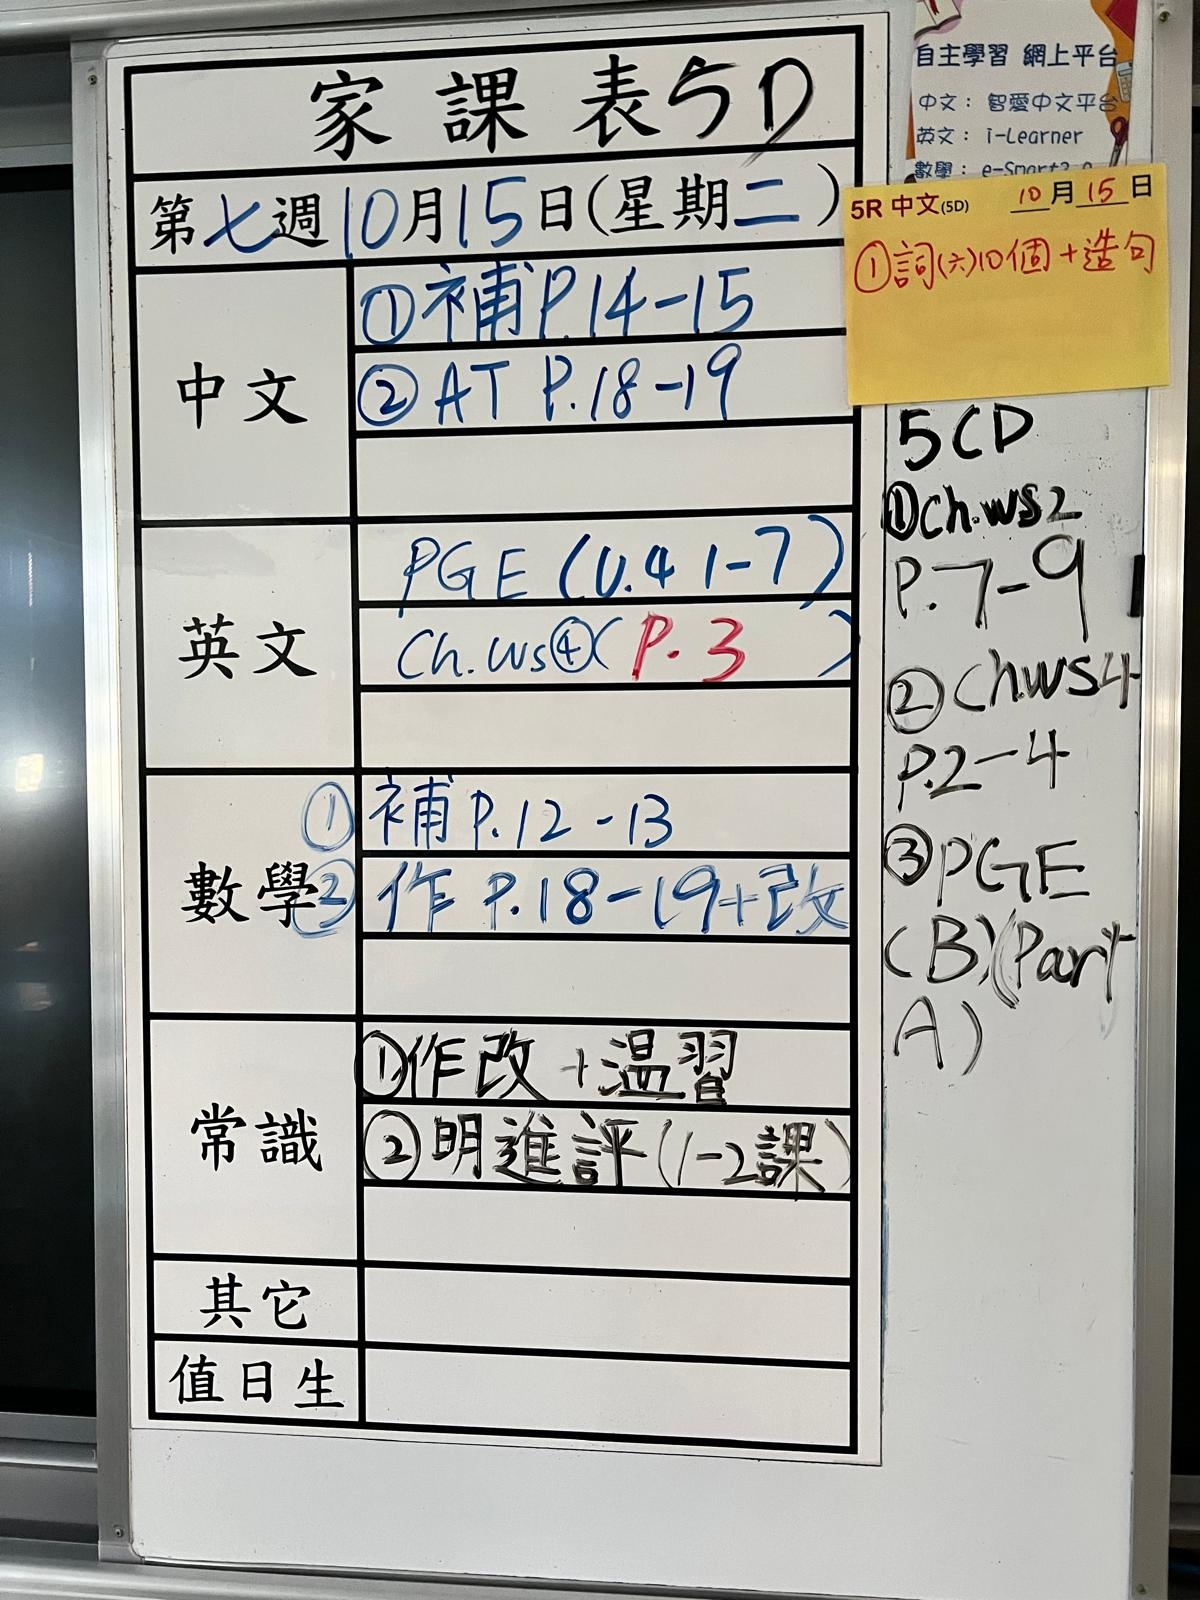 家課表5D
第七週10月15日(星期二)
中文
①補P.14-15
②AT P.18-19
英文
PGE (U.4 1-7)
Ch.Ws④(P.3)
數學
①補P.12-13
②作P.18-19+改
常識
①作改+温習
②明進評(1-2課)
其它
值日生
自主學習 網上平台
中文： 智愛中文平台
英文： i-Learner
數學： e-Smart2.0
5R 中文(5D) 10月15日
①詞(六)10個+造句
5CD
①Ch.ws2
P.7-9
②Ch.WS4
P.2-4
③PGE
(B)(Part
A)